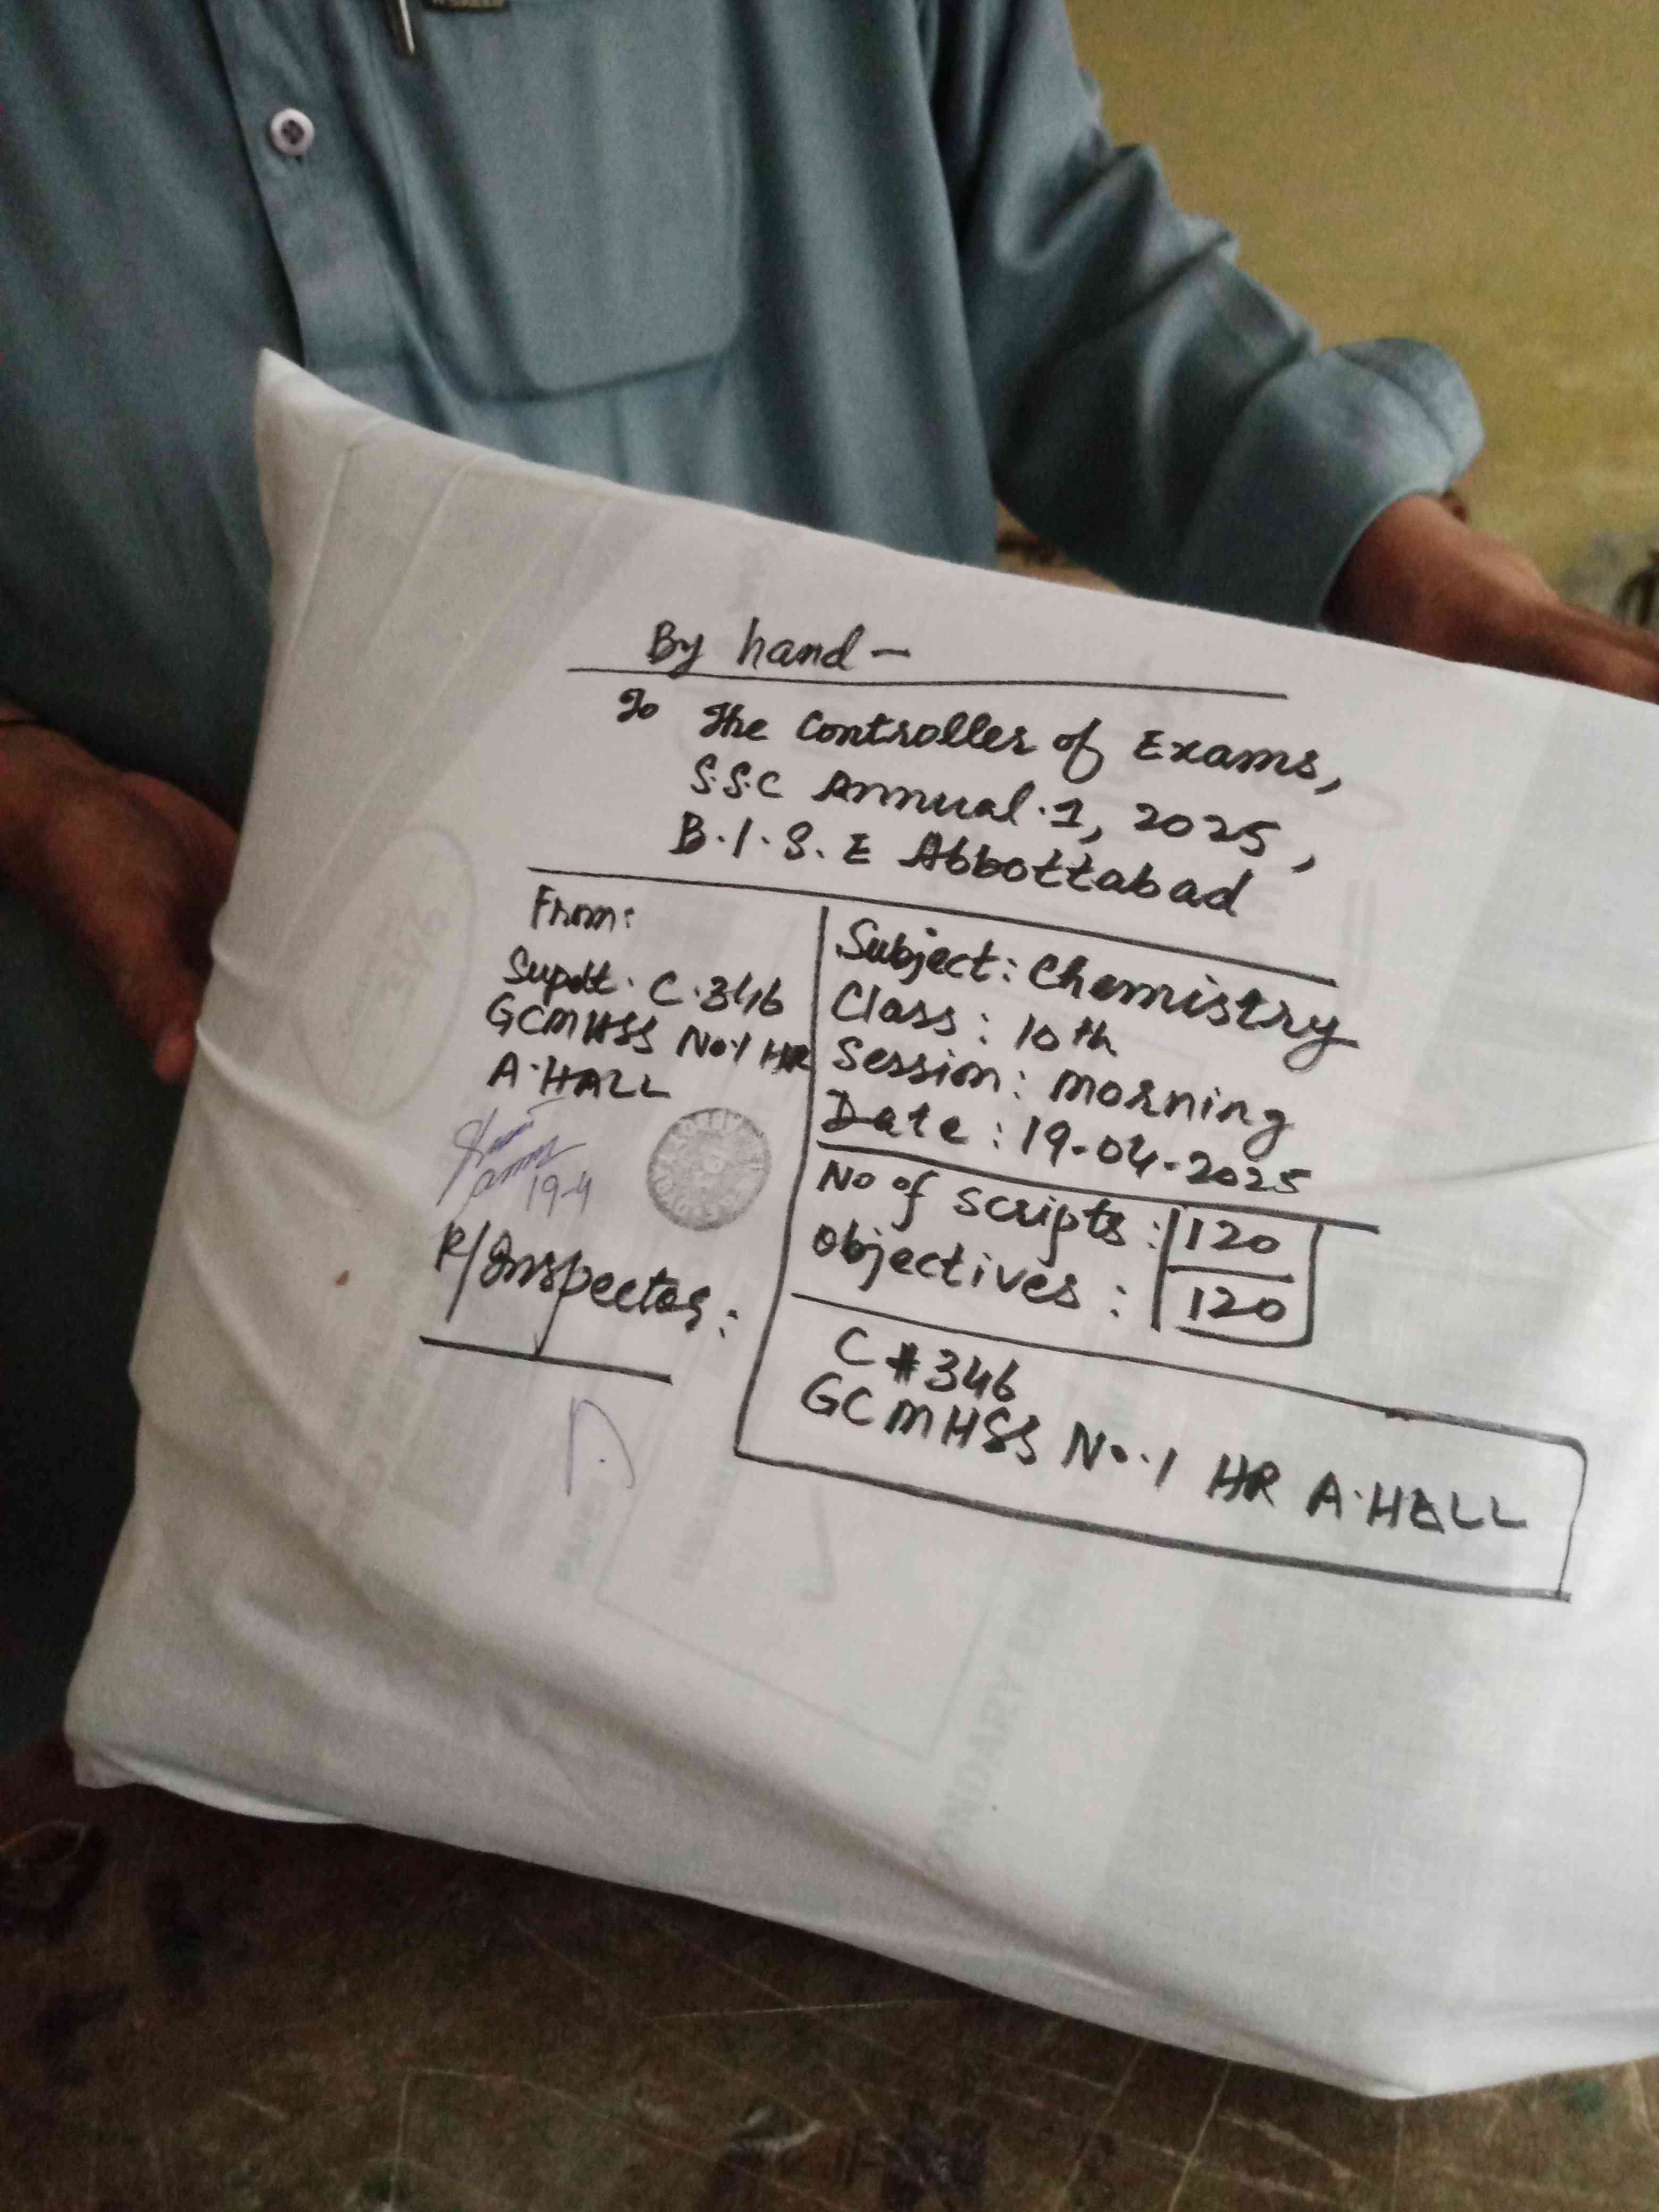 By hand -
To The Controller of Exams,
S.S.C Annual.1, 2025,
B.I.S.E Abbottabad
From:
Supdt. C.346
GCMHSS No.1 HR
A.HALL
19-4
R/Inspector:
Subject: Chemistry
Class: 10th
Session: morning
Date: 19-04-2025
No of scripts: 120
Objectives: 120
C #346
GCMHSS No.1 HR A.HALL